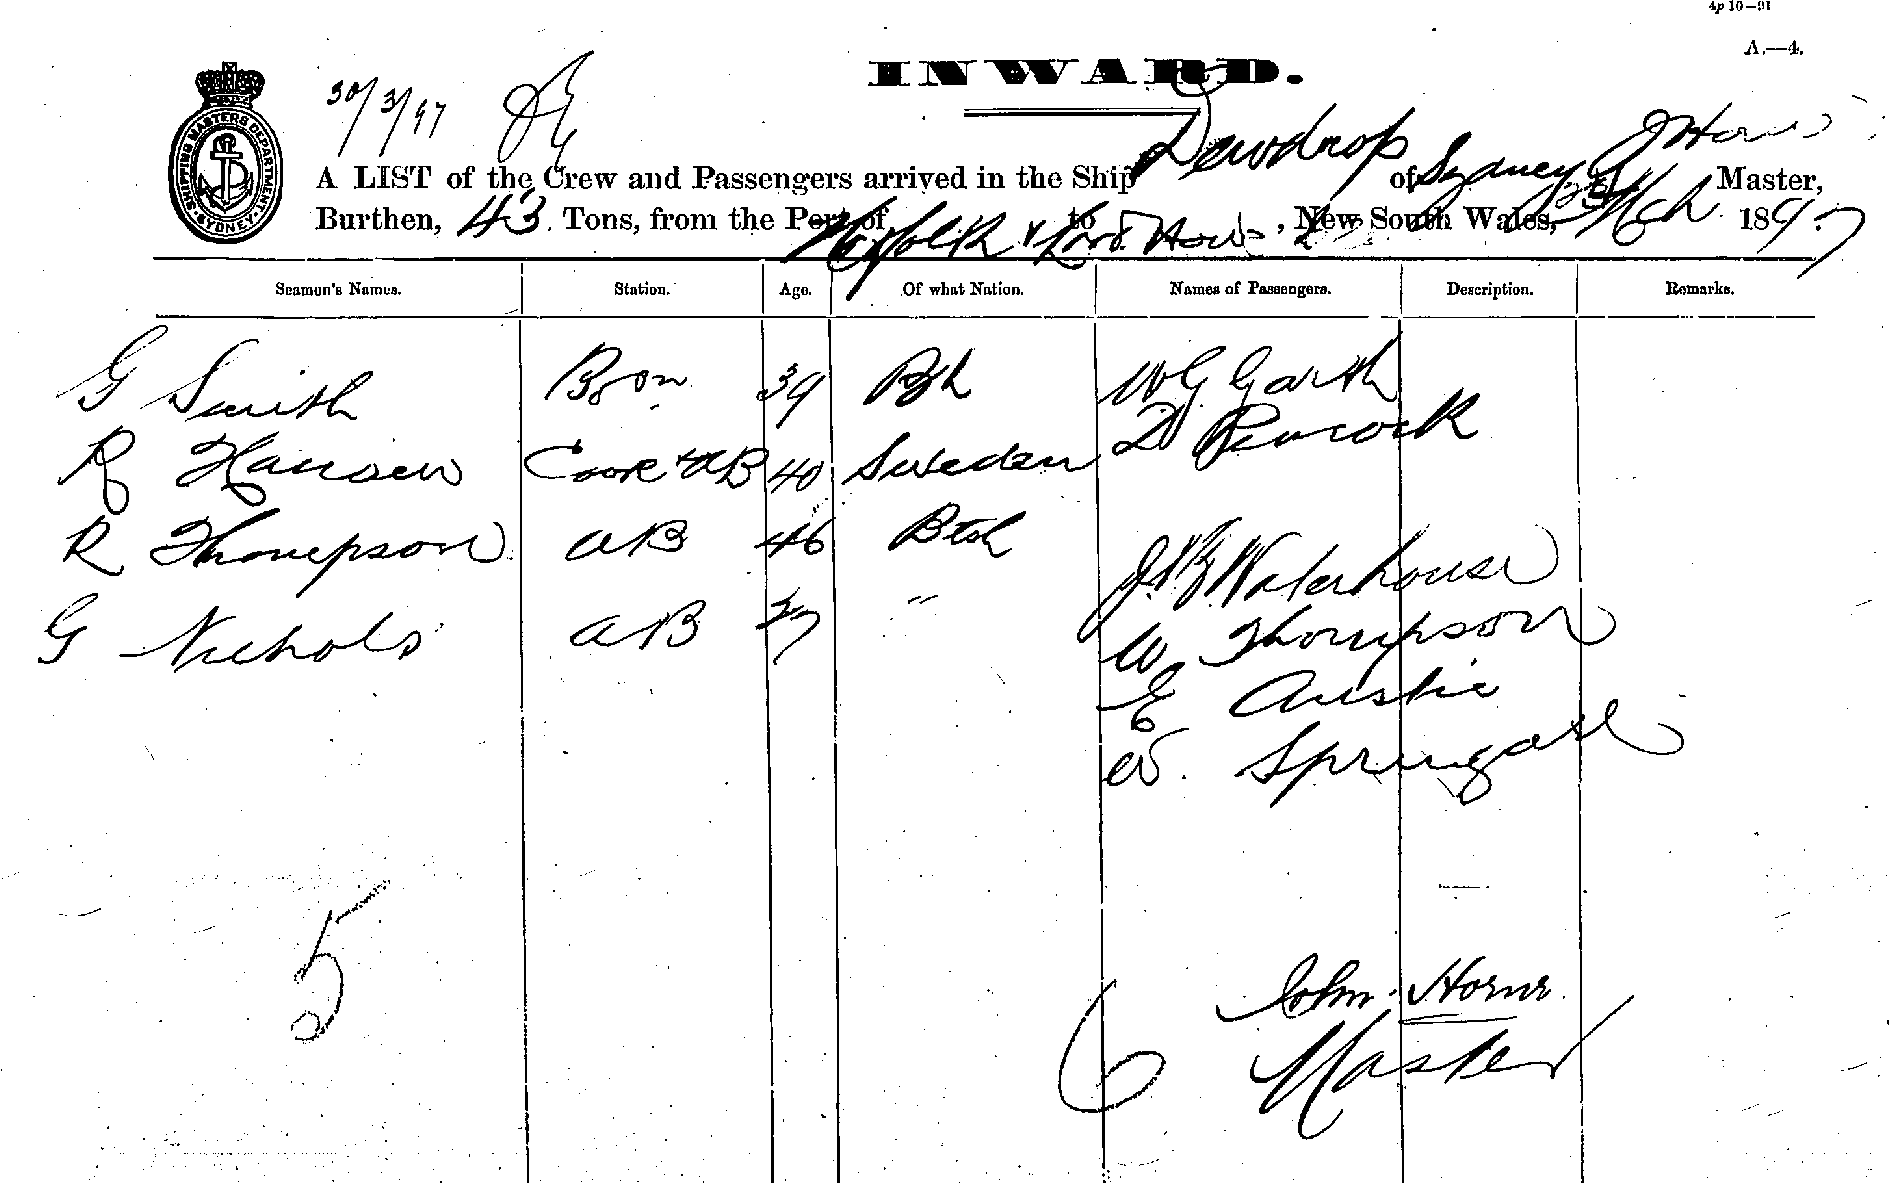 4p 10—91
A.—4.
INWARD.
30/3/97
SHIPPING MASTERS DEPARTMENT SYDNEY
A LIST of the Crew and Passengers arrived in the Ship Dewdrop of Sydney, J Horn Master,
Burthen, 43 Tons, from the Port of Norfolk & Lord Howe to , New South Wales, Mch 1897
Seamen's Names. Station. Age. Of what Nation. Names of Passengers. Description. Remarks.
G Smith Bosn 39 Bh W G Garth
D Peacock
R Hansen Cook & AB 40 Sweden
R Thompson AB 46 Btsh
J Waterhouse
G Nichols AB 37 "
W Thompson
E Austie
W. Springall
5
John Horne
6 Master